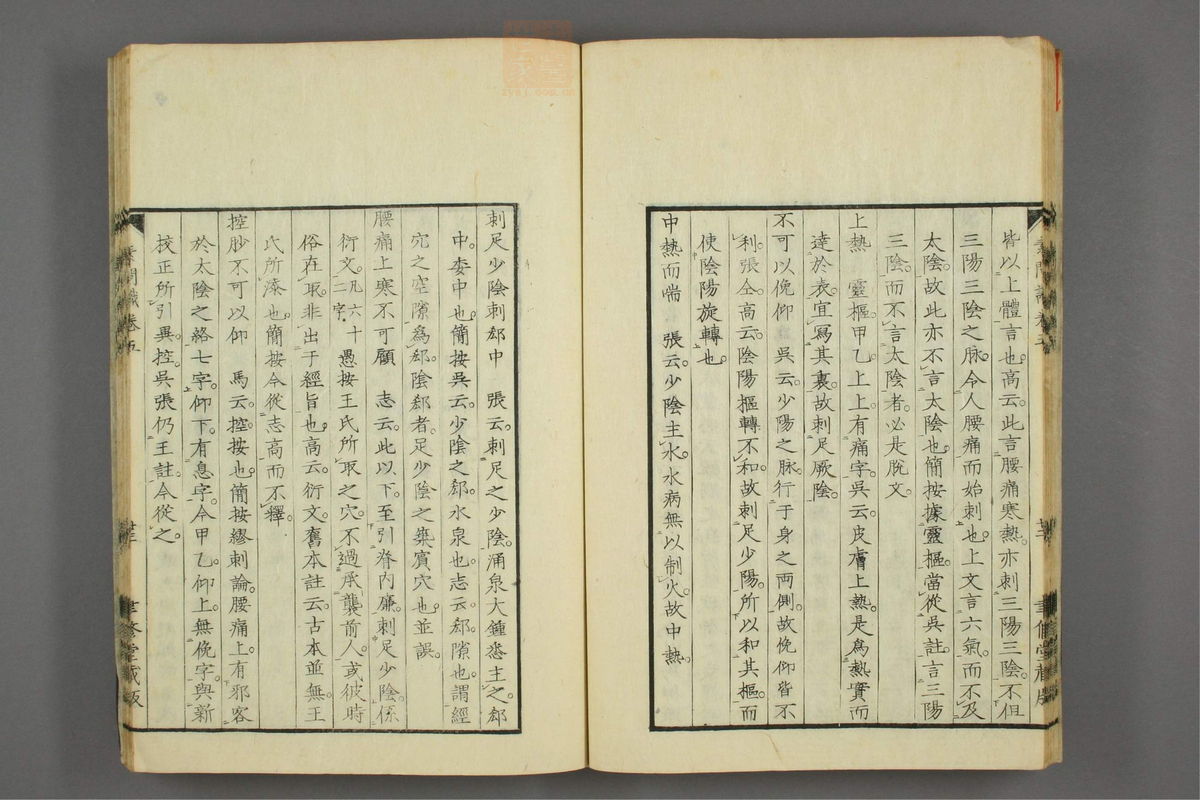 皆以上體言也。高云。此言腰痛寒熱。亦刺三陽三陰。不但
三陽三陰之脉。今人腰痛而始刺也。上文言六氣。而不及
太陰。故此亦不言太陰也。簡按據靈樞。當從吳註。言三陽
三陰。而不言太陰者。必是脫文。
上熱 靈樞。甲乙。上上有痛字。吳云。皮膚上熱。是爲熱實而
達於表。宜寫其裏。故刺足厥陰。
不可以俛仰 吳云。少陽之脉。行于身之兩側。故俛仰皆不
利。張仝。高云。陰陽樞轉不和。故刺足少陽。所以和其樞。而
使陰陽旋轉也。
中熱而喘 張云。少陰主水。水病無以制火。故中熱。
刺足少陰刺郄中 張云。刺足之少陰。涌泉大鍾悉主之。郄
中。委中也。簡按吳云。少陰之郄。水泉也。志云。郄隙也。謂經
穴之空隙爲郄。陰郄者。足少陰之築賓穴也。並誤。
腰痛上寒不可顧 志云。此以下。至引脊內廉。刺足少陰。係
衍文。凡六十二字。愚按王氏所取之穴。不過承襲前人。或彼時
俗在取。非出于經旨也。高云。衍文。舊本註云。古本並無。王
氏所添也。簡按今從志高而不釋。
控䏚不可以仰 馬云。控按也。簡按繆刺論腰痛上。有邪客
於太陰之絡七字。仰下。有息字。今甲乙。仰上。無俛字。與新
挍正所引異。控。吳張仍王註。今從之。
素問識卷五
聿修堂藏版